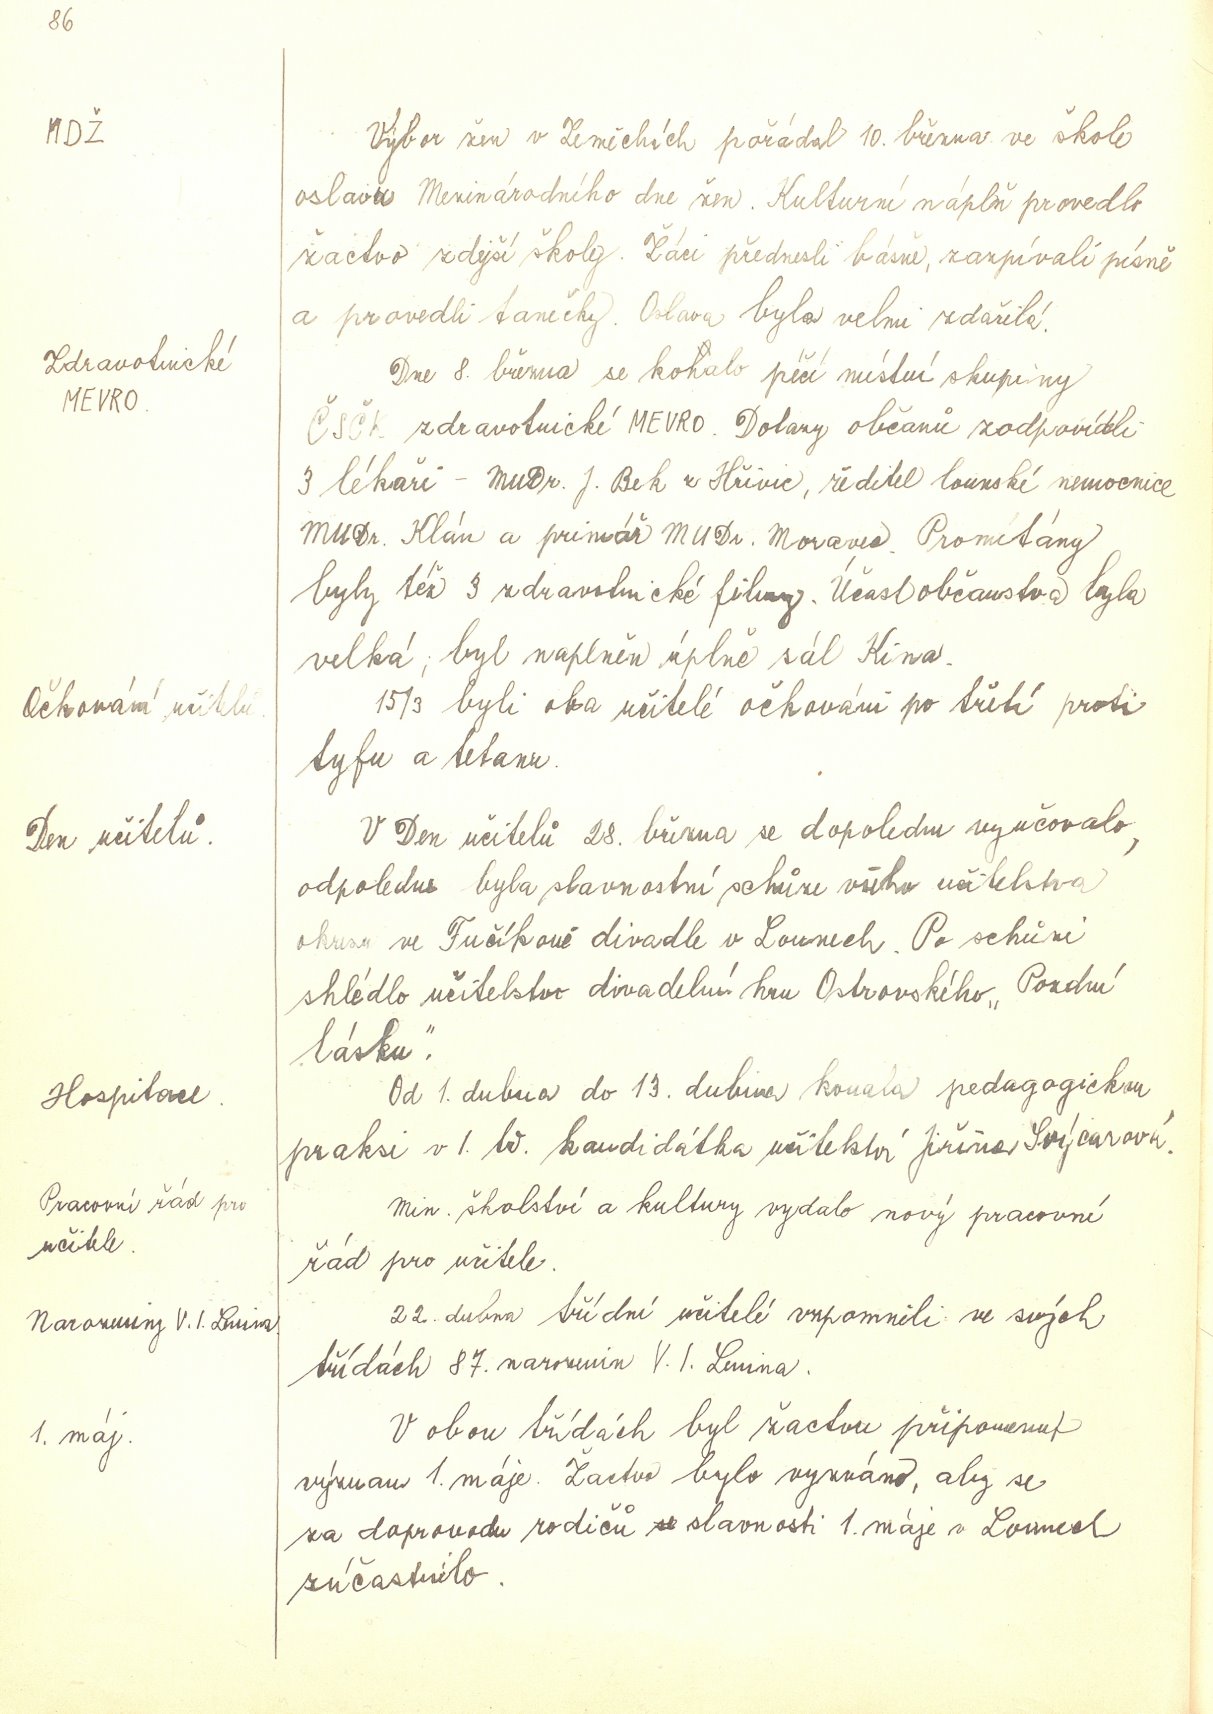 86
MDŽ
Výbor žen v Zeměchích pořádal 10. března ve škole
oslavu Mezinárodního dne žen. Kulturní náplň provedlo
žactvo zdejší školy. Žáci přednesli básně, zazpívali písně
a provedli tanečky. Oslava byla velmi zdařilá.
Zdravotnické
MEVRO.
Dne 8. března se konalo péčí místní skupiny
ČSČK zdravotnické MEVRO. Dotazy občanů zodpovídali
3 lékaři – MUDr. J. Bek z Hřivic, ředitel lounské nemocnice
MUDr. Klán a primář MUDr. Moravec. Promítány
byly též 3 zdravotnické filmy. Účast občanstva byla
velká, byl naplněn úplně sál Kina.
Očkování učitelů.
15/3 byli oba učitelé očkováni po třetí proti
tyfu a tetanu.
Den učitelů.
V Den učitelů 28. března se dopoledne vyučovalo,
odpoledne byla slavnostní schůze všeho učitelstva
okresu ve Fučíkově divadle v Lounech. Po schůzi
shlédlo učitelstvo divadelní hru Ostrovského „Pozdní
lásku".
Hospitace.
Od 1. dubna do 13. dubna konala pedagogickou
praksi v 1. tř. kandidátka učitelství Jiřina Švýcarová.
Pracovní řád pro
učitele.
Min. školství a kultury vydalo nový pracovní
řád pro učitele.
Narozeniny V. I. Lenina
22. dubna třídní učitelé vzpomněli ve svých
třídách 87. narozenin V. I. Lenina.
1. máj.
V obou třídách byl žactvu připomenut
význam 1. máje. Žactvo bylo vyzváno, aby se
za doprovodu rodičů se slavnosti 1. máje v Lounech
zúčastnilo.